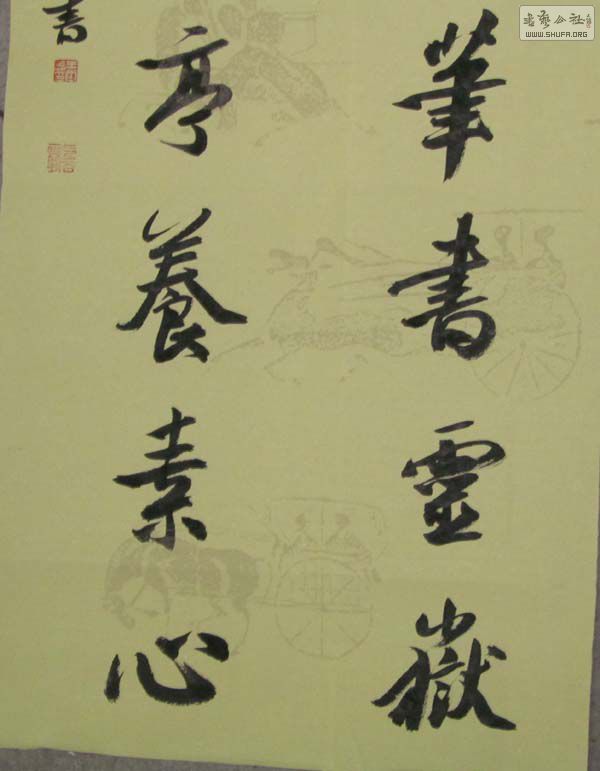 筆書靈嶽
亭養素心
書
書藝公社
WWW.SHUFA.ORG